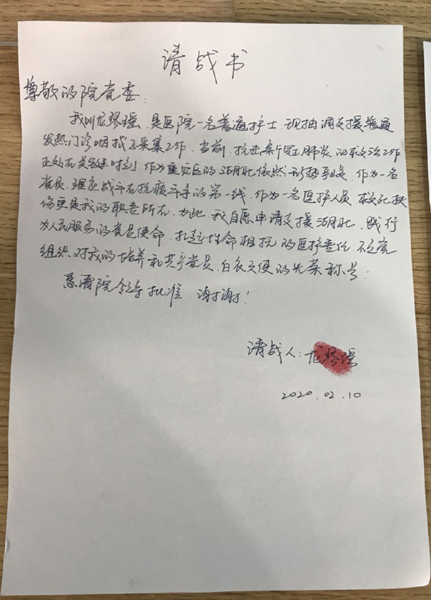 请战书
尊敬的院党委:
我叫龙琴瑶,是医院一名普通护士,现抽调支援
发热门诊咽拭子采集工作。当前,抗击新冠肺炎的救治工作
正处在关键时刻,作为重灾区的湖北依然形势严峻,作为一名
党员,理应战斗在抗疫斗争的第一线,作为一名医护人员,救死扶
伤更是我的职责所在,为此,我自愿申请支援湖北,践行
为人民服务的党员使命,扛起性命相托的医护责任,不辜负
组织对我的培养和共产党员、白衣天使的光荣称号。
恳请院领导批准,谢谢!
请战人:龙琴瑶
2020.02.10